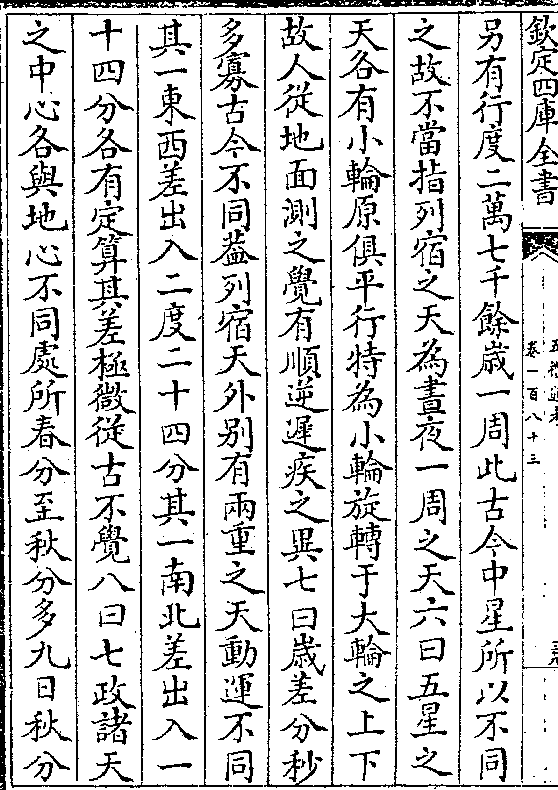 欽定四庫全書
卷一百八十三
另有行度二萬七千餘歲一周此古今中星所以不同
之故不當指列宿之天為晝夜一周之天六曰五星之
天各有小輪原俱平行特為小輪旋轉于大輪之上下
故人從地面測之覺有順逆遲疾之異七曰歲差分秒
多寡古今不同葢列宿天外别有兩重之天動運不同
其一東西差出入二度二十四分其一南北差出入一
十四分各有定算其差極微從古不覺八曰七政諸天
之中心各與地心不同處所春分至秋分多九日秋分